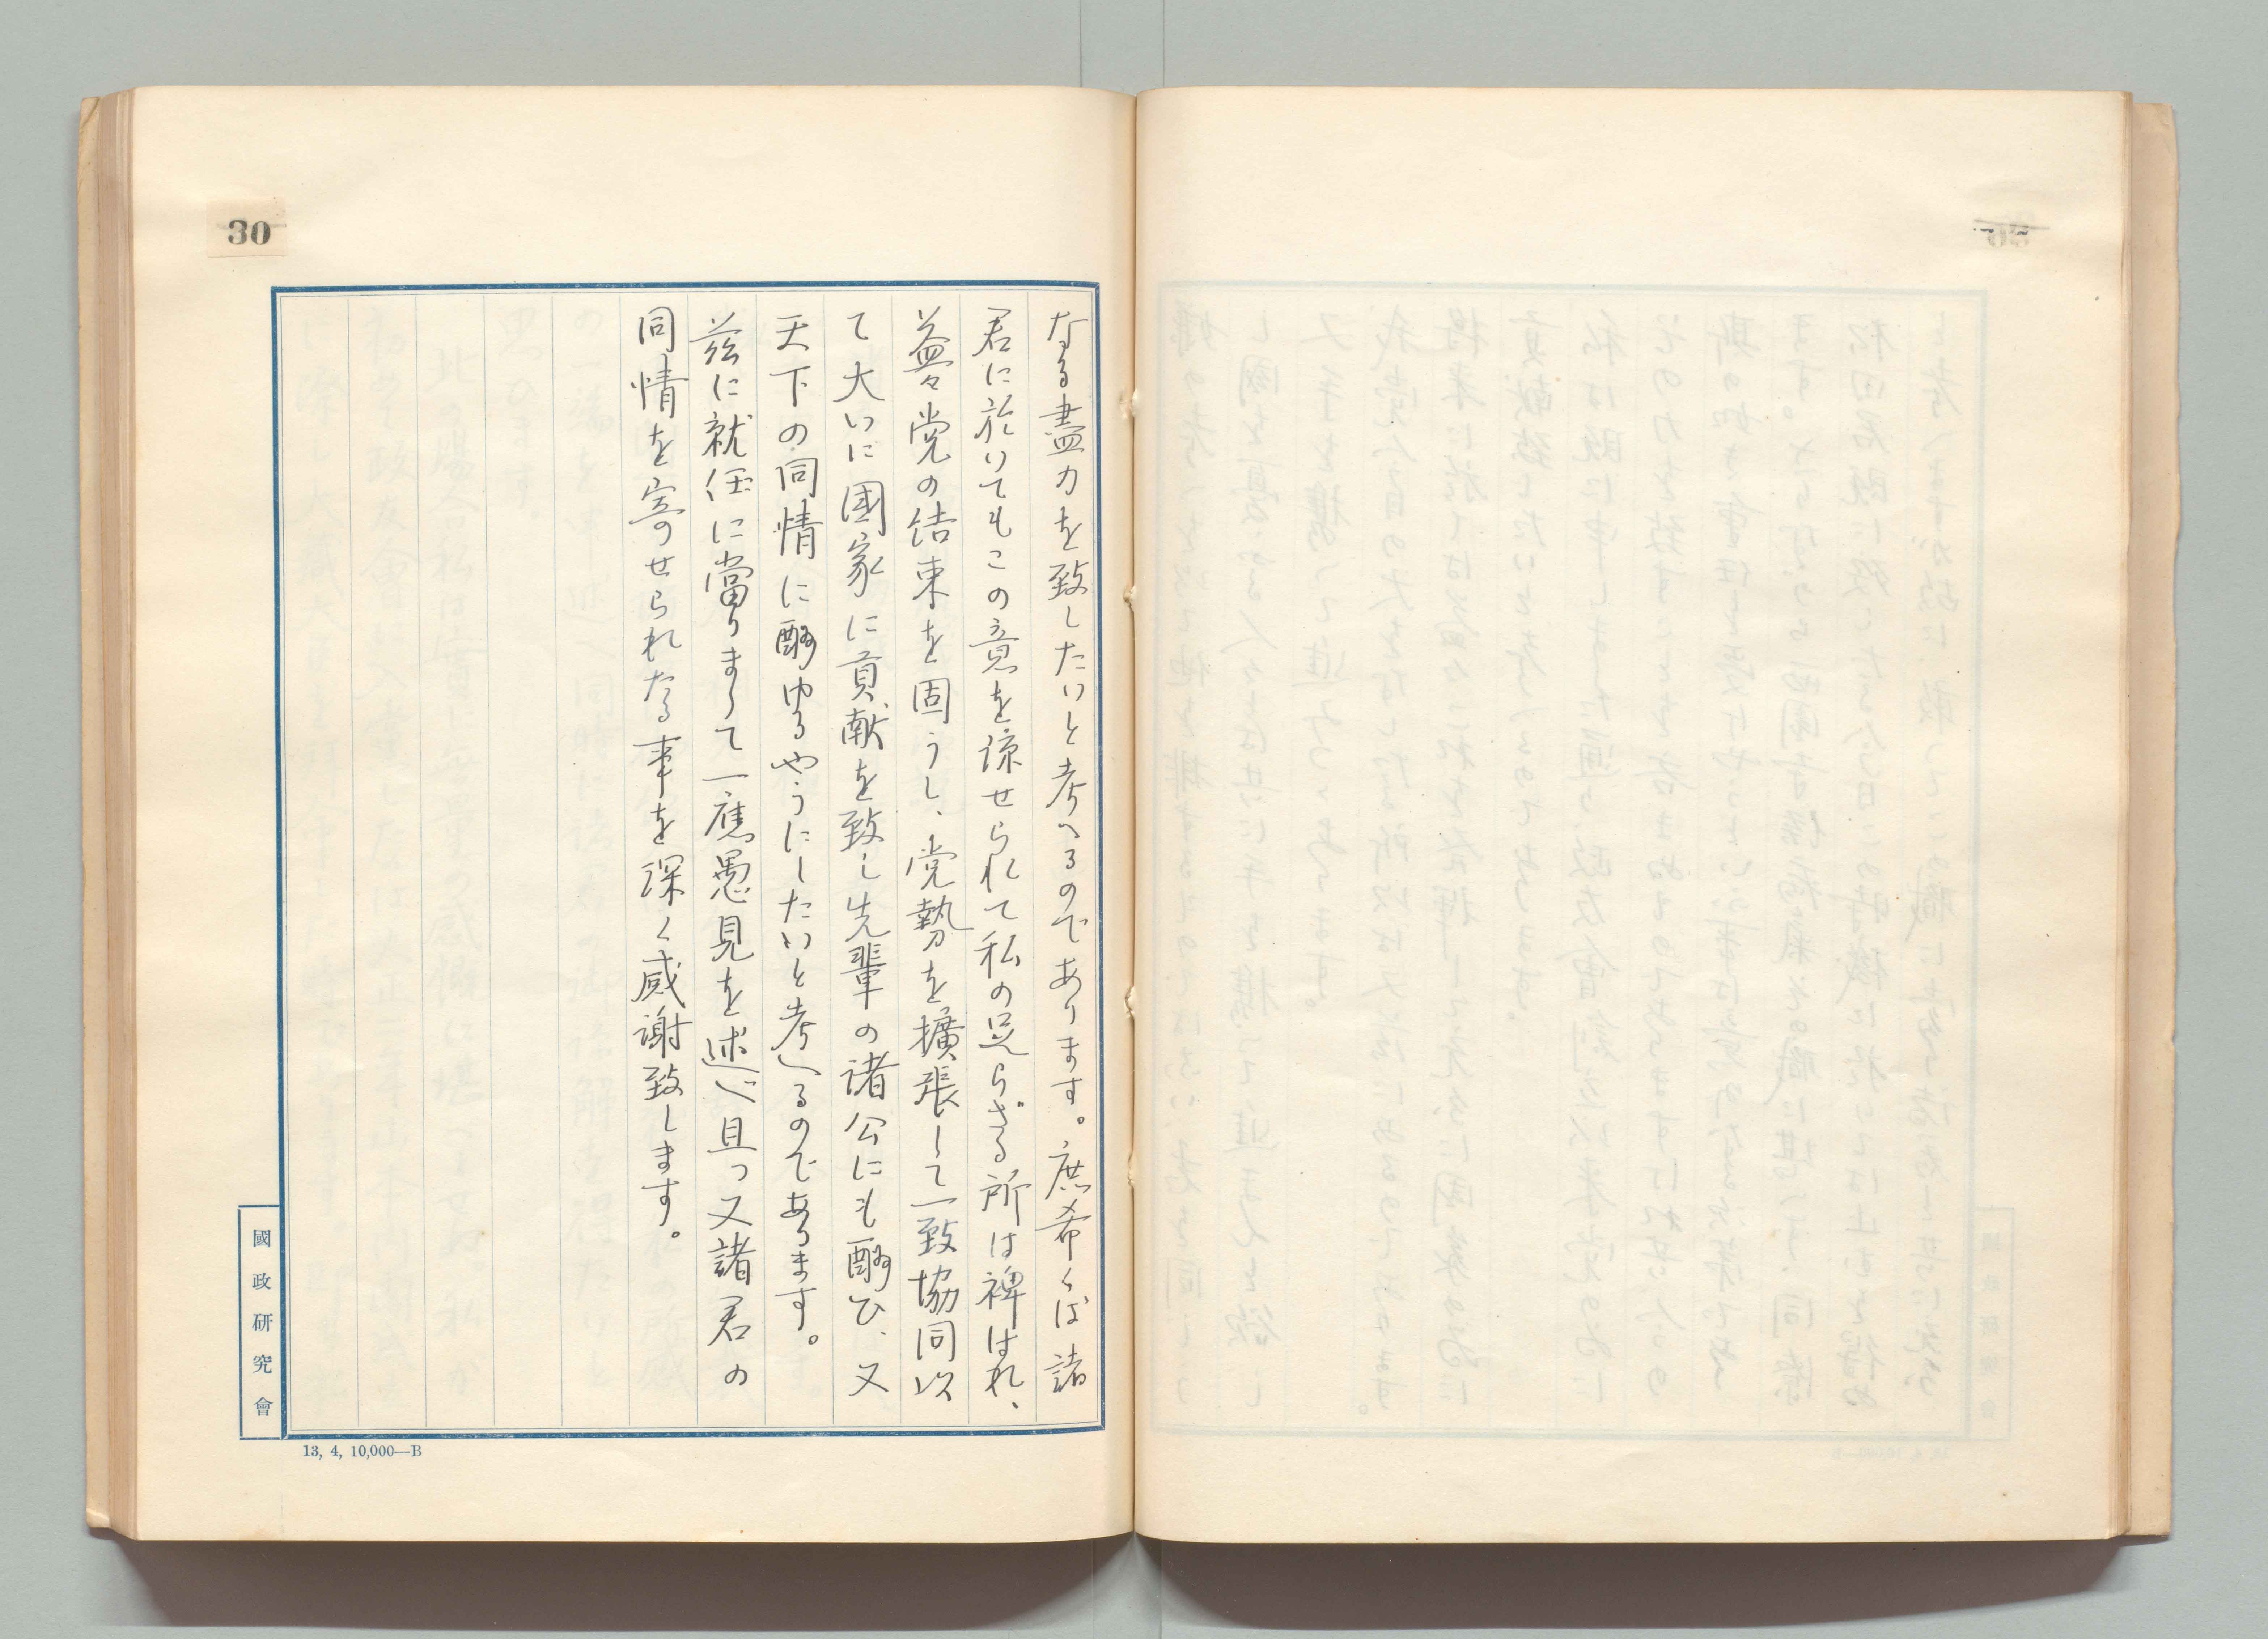 なる盡力を致したいと考へるのであります。庶希くば諸
君に於いてもこの意を諒せられて私の足らざる所は裨はれ、
益々党の結束を固うし、党勢を擴張して一致協同以
て大いに國家に貢献を致し先輩の諸公にも酬ひ、又
天下の同情に酬ゆるやうにしたいと考へるのであります。
茲に就任に當りまして一應愚見を述べ且つ又諸君の
同情を寄せられたる事を深く感謝致します。
30
國政研究會
13, 4, 10,000—B